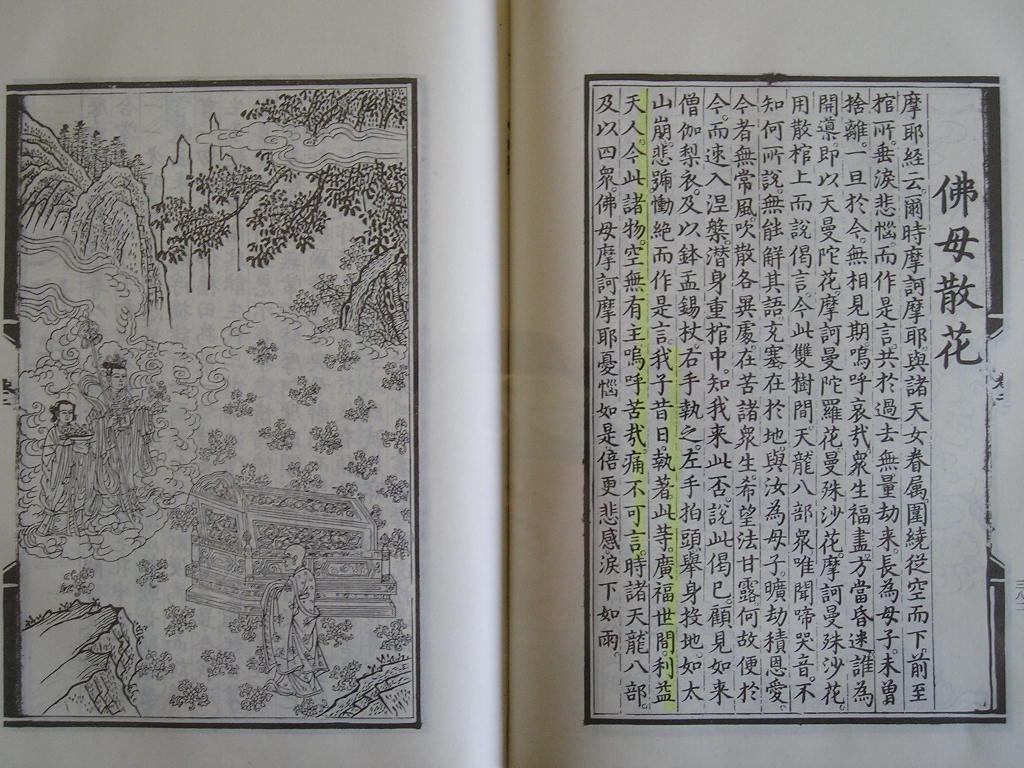 佛母散花
摩耶經云。爾時摩訶摩耶與諸天女眷屬圍繞從空而下。前至
棺所。垂淚悲惱。而作是言共於過去無量劫來。長為母子。未曾
捨離。一旦於今。無相見期嗚呼哀哉衆生福盡。方當昏迷誰為
開導。即以天曼陀花摩訶曼陀羅花曼殊沙花。摩訶曼殊沙花
用散棺上而說偈言今此雙樹間。天龍八部衆唯聞啼哭音。不
知何所說。無能解其語充塞在於地與汝為母子曠劫積恩愛
今者無常風吹散各異處在苦諸衆生希望法甘露何故便於
今。而速入涅槃。潛身重棺中。知我來此否。說此偈已顧見如來
僧伽梨衣。及以鉢盂錫杖右手執之左手拍頭舉身投地。如太
山崩悲號慟絕而作是言。我子昔日執著此等。廣福世間。利益
天人。今此諸物。空無有主嗚呼苦哉。痛不可言。時諸天龍八部
及以四衆。佛母摩訶摩耶憂惱如是倍更悲感淚下如雨。
卷二